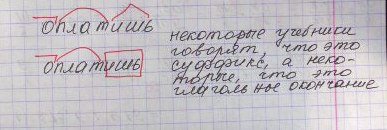 оплатишь
оплатишь
некоторые учебники
говорят, что это
суффикс, а неко-
торые, что это
глагольные окончание